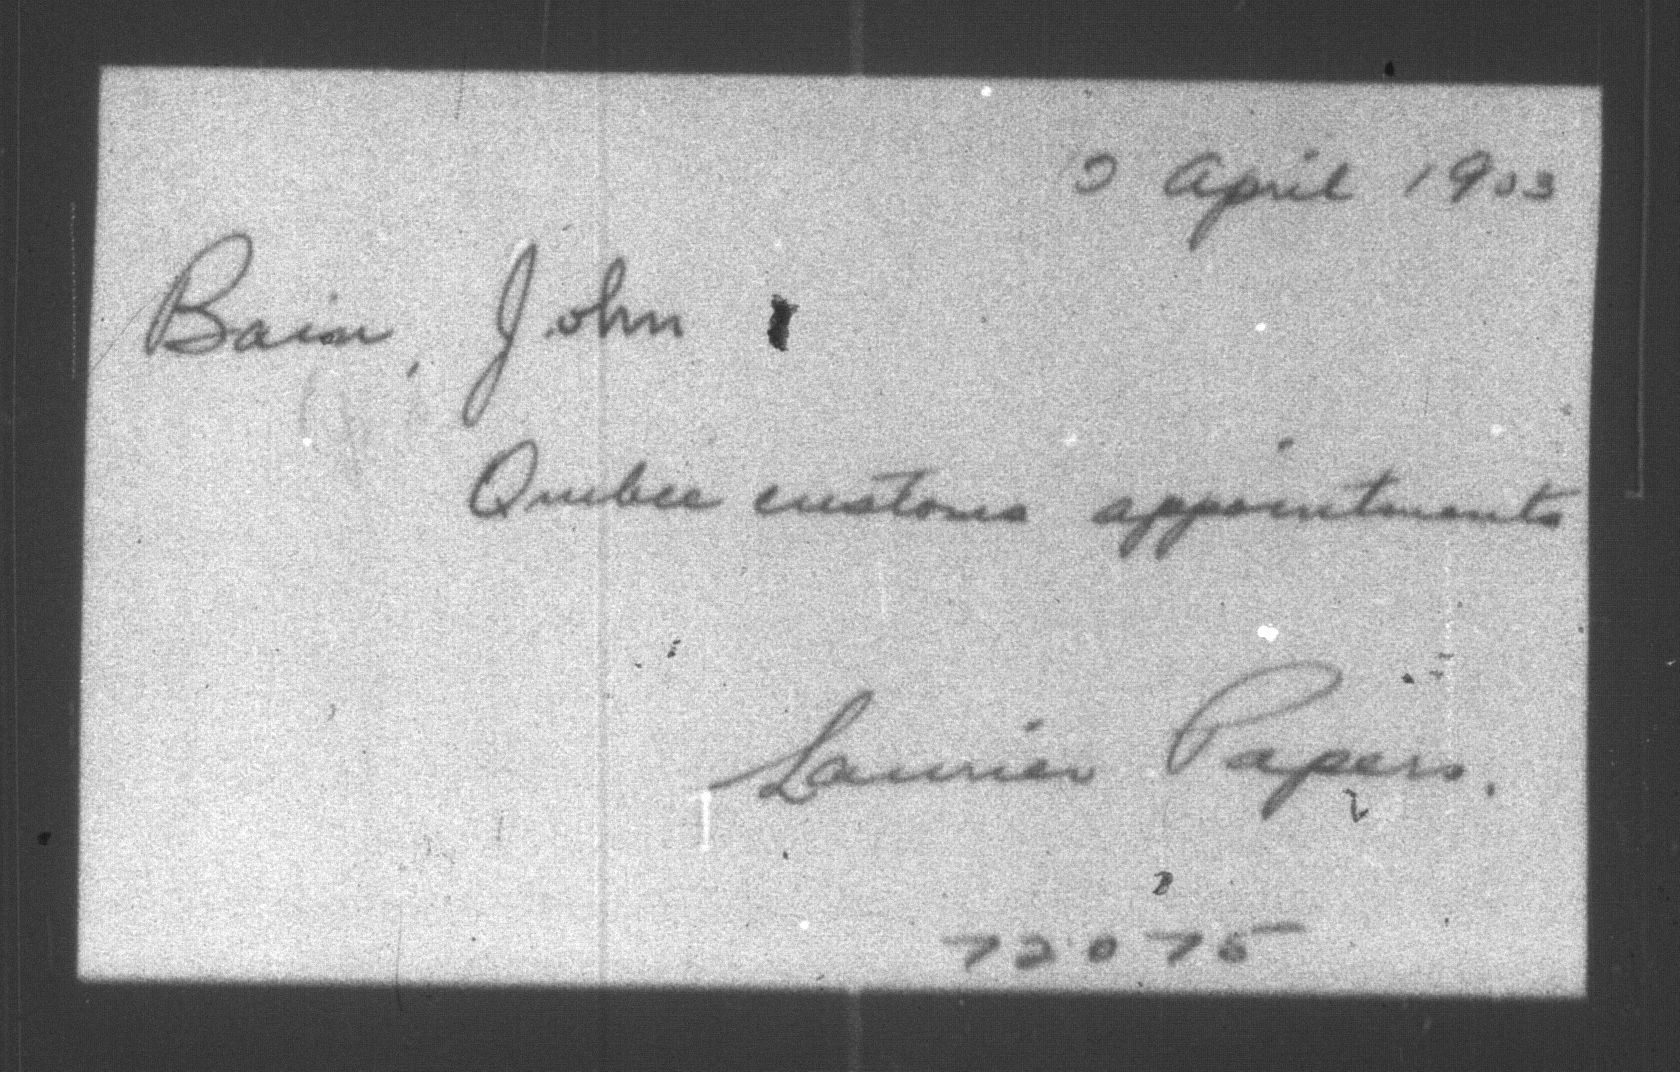 April 1903
Bain, John
Quebec customs appointments
Laurier Papers.
72075